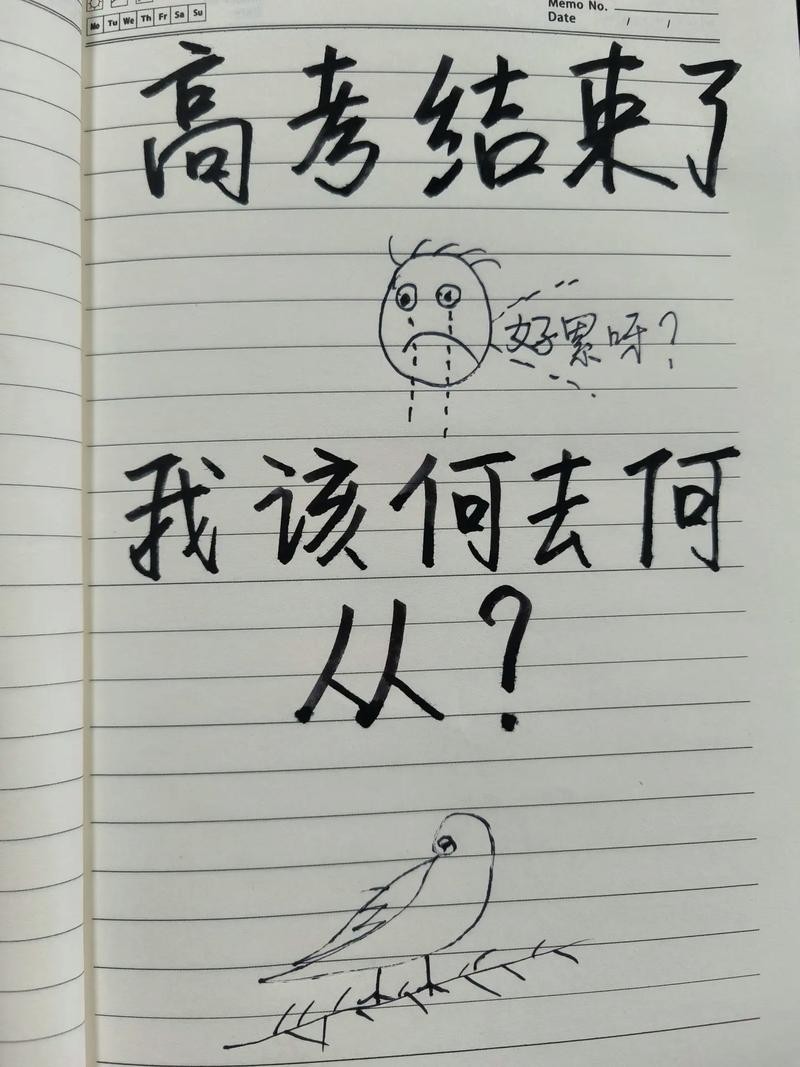 Memo No.
Mo Tu We Th Fr Sa Su
Date / /
高考结束了
好累呀?
我该何去何
从?